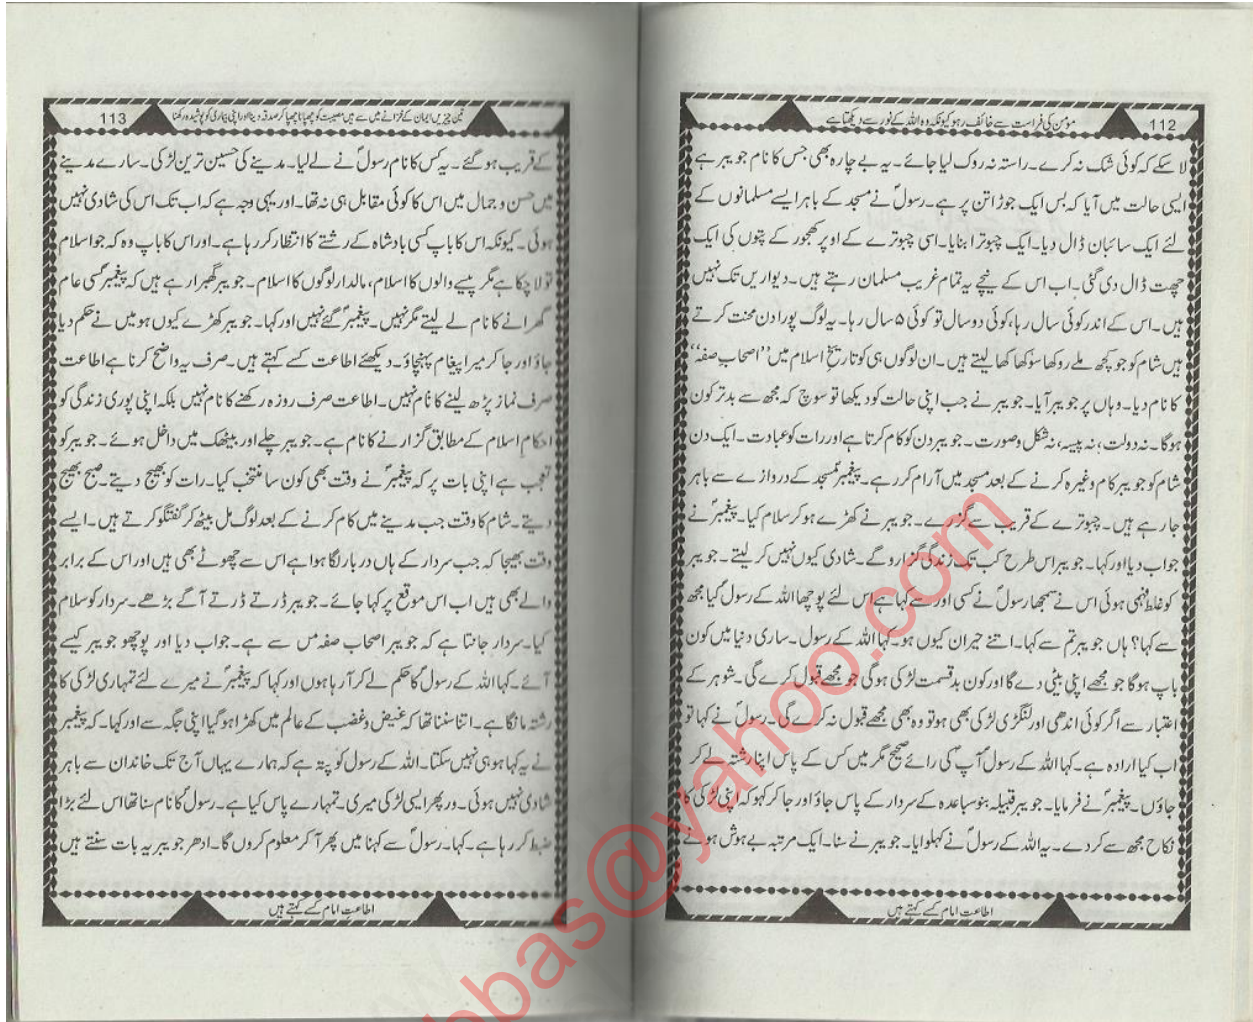 112
مؤمن کی فراست سے خائف رہو کیونکہ وہ اللہ کے نور سے دیکھتا ہے
لا سکے کہ کوئی شک نہ کرے۔ راستہ نہ روک لیا جائے۔ یہ بے چارہ بھی جس کا نام جویبر ہے
ایسی حالت میں آیا کہ بس ایک جوڑا تن پر ہے۔ رسولؐ نے مسجد کے باہر ایسے مسلمانوں کے
لئے ایک سائبان ڈال دیا۔ ایک چبوترا بنایا۔ اسی چبوترے کے اوپر کھجور کے پتوں کی ایک
چھت ڈال دی گئی۔ اب اس کے نیچے یہ تمام غریب مسلمان رہتے ہیں۔ دیواریں تک نہیں
ہیں۔ اس کے اندر کوئی سال رہا، کوئی دو سال تو کوئی ۵ سال رہا۔ یہ لوگ پورا دن محنت کرتے
ہیں شام کو جو کچھ ملے روکھا سوکھا کھا لیتے ہیں۔ ان لوگوں ہی کو تاریخ اسلام میں ’’اصحاب صفہ‘‘
کا نام دیا۔ وہاں پر جویبر آیا۔ جویبر نے جب اپنی حالت کو دیکھا تو سوچ کہ مجھ سے بدتر کون
ہوگا۔ نہ دولت، نہ پیسہ، نہ شکل و صورت۔ جویبر دن کو کام کرتا ہے اور رات کو عبادت۔ ایک دن
شام کو جویبر کام وغیرہ کرنے کے بعد مسجد میں آرام کر رہے۔ پیغمبرؐ مسجد کے دروازے سے باہر
جا رہے ہیں۔ چبوترے کے قریب سے گزرے۔ جویبر نے کھڑے ہو کر سلام کیا۔ پیغمبرؐ نے
جواب دیا اور کہا۔ جویبر اس طرح کب تک زندگی گزارو گے۔ شادی کیوں نہیں کر لیتے۔ جویبر
کو غلط فہمی ہوئی اس نے سمجھا رسولؐ نے کسی اور سے کہا ہے اس لئے پوچھا اللہ کے رسول کیا مجھ
سے کہا؟ ہاں جویبر تم سے کہا۔ اتنے حیران کیوں ہو۔ کہا اللہ کے رسول۔ ساری دنیا میں کون
باپ ہوگا جو مجھے اپنی بیٹی دے گا اور کون بدقسمت لڑکی ہوگی جو مجھے قبول کرے گی۔ شوہر کے
اعتبار سے اگر کوئی اندھی اور لنگڑی لڑکی بھی ہو تو وہ بھی مجھے قبول نہ کرے گی۔ رسولؐ نے کہا تو
اب کیا ارادہ ہے۔ کہا اللہ کے رسولؐ آپؐ کی رائے صحیح مگر میں کس کے پاس اپنا رشتہ لے کر
جاؤں۔ پیغمبرؐ نے فرمایا۔ جویبر قبیلہ بنو ساعدہ کے سردار کے پاس جاؤ اور جا کر کہو کہ اپنی لڑکی کا
نکاح مجھ سے کر دے۔ یہ اللہ کے رسولؐ نے کہلوایا۔ جویبر نے سنا۔ ایک مرتبہ بے ہوش ہونے
اطاعت امام کسے کہتے ہیں
113
تین چیزیں ایمان کے خزانے میں سے ہیں مصیبت کو چھپانا چھپا کر صدقہ دینا اور اپنی بیماری کو پوشیدہ رکھنا
کے قریب ہو گئے۔ یہ کس کا نام رسولؐ نے لے لیا۔ مدینے کی حسین ترین لڑکی۔ سارے مدینے
میں حسن و جمال میں اس کا کوئی مقابل ہی نہ تھا۔ اور یہی وجہ ہے کہ اب تک اس کی شادی نہیں
ہوئی۔ کیونکہ اس کا باپ کسی بادشاہ کے رشتے کا انتظار کر رہا ہے۔ اور اس کا باپ وہ کہ جو اسلام
تو لا چکا ہے مگر پیسے والوں کا اسلام، مالدار لوگوں کا اسلام۔ جویبر گھبرا رہے ہیں کہ پیغمبرؐ کسی عام
گھرانے کا نام لے لیتے مگر نہیں۔ پیغمبرؐ گئے نہیں اور کہا۔ جویبر کھڑے کیوں ہو میں نے حکم دیا
جاؤ اور جا کر میرا پیغام پہنچاؤ۔ دیکھئے اطاعت کسے کہتے ہیں۔ صرف یہ واضح کرنا ہے اطاعت
صرف نماز پڑھ لینے کا نام نہیں۔ اطاعت صرف روزہ رکھنے کا نام نہیں بلکہ اپنی پوری زندگی کو
احکام اسلام کے مطابق گزارنے کا نام ہے۔ جویبر چلے اور بیٹھک میں داخل ہوئے۔ جویبر کو
تعجب ہے اپنی بات پر کہ پیغمبرؐ نے وقت بھی کون سا منتخب کیا۔ رات کو بھیج دیتے۔ صبح بھیج
دیتے۔ شام کا وقت جب مدینے میں کام کرنے کے بعد لوگ مل بیٹھ کر گفتگو کرتے ہیں۔ ایسے
وقت بھیجا کہ جب سردار کے ہاں دربار لگا ہوا ہے اس سے چھوٹے بھی ہیں اور اس کے برابر
والے بھی ہیں اب اس موقع پر کہا جائے۔ جویبر ڈرتے ڈرتے آگے بڑھے۔ سردار کو سلام
کیا۔ سردار جانتا ہے کہ جویبر اصحاب صفہ مس سے ہے۔ جواب دیا اور پوچھو جویبر کیسے
آئے۔ کہا اللہ کے رسولؐ کا حکم لے کر آ رہا ہوں اور کہا کہ پیغمبرؐ نے میرے لئے تمہاری لڑکی کا
رشتہ مانگا ہے۔ اتنا سننا تھا کہ غیض و غضب کے عالم میں کھڑا ہو گیا اپنی جگہ سے اور کہا۔ کہ پیغمبر
نے یہ کہا ہو ہی نہیں سکتا۔ اللہ کے رسولؐ کو پتہ ہے کہ ہمارے یہاں آج تک خاندان سے باہر
شادی نہیں ہوئی۔ ور پھر ایسی لڑکی میری۔ تمہارے پاس کیا ہے۔ رسولؐ کا نام سنا تھا اس لئے بڑا
ضبط کر رہا ہے۔ کہا۔ رسولؐ سے کہنا میں پھر آ کر معلوم کروں گا۔ ادھر جویبر یہ بات سنتے ہیں
اطاعت امام کسے کہتے ہیں
bas@yahoo.com